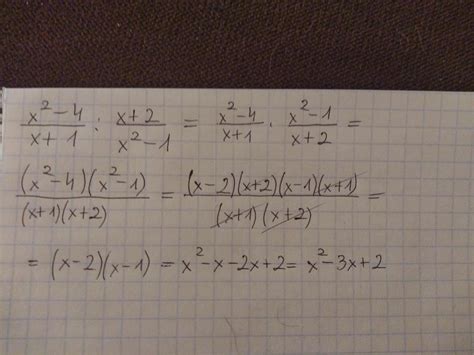 (x² - 4)/(x + 1) : (x + 2)/(x² - 1) = (x² - 4)/(x + 1) · (x² - 1)/(x + 2) =
((x² - 4)(x² - 1))/((x + 1)(x + 2)) = ((x - 2)(x + 2)(x - 1)(x + 1))/((x + 1)(x + 2)) =
= (x - 2)(x - 1) = x² - x - 2x + 2 = x² - 3x + 2